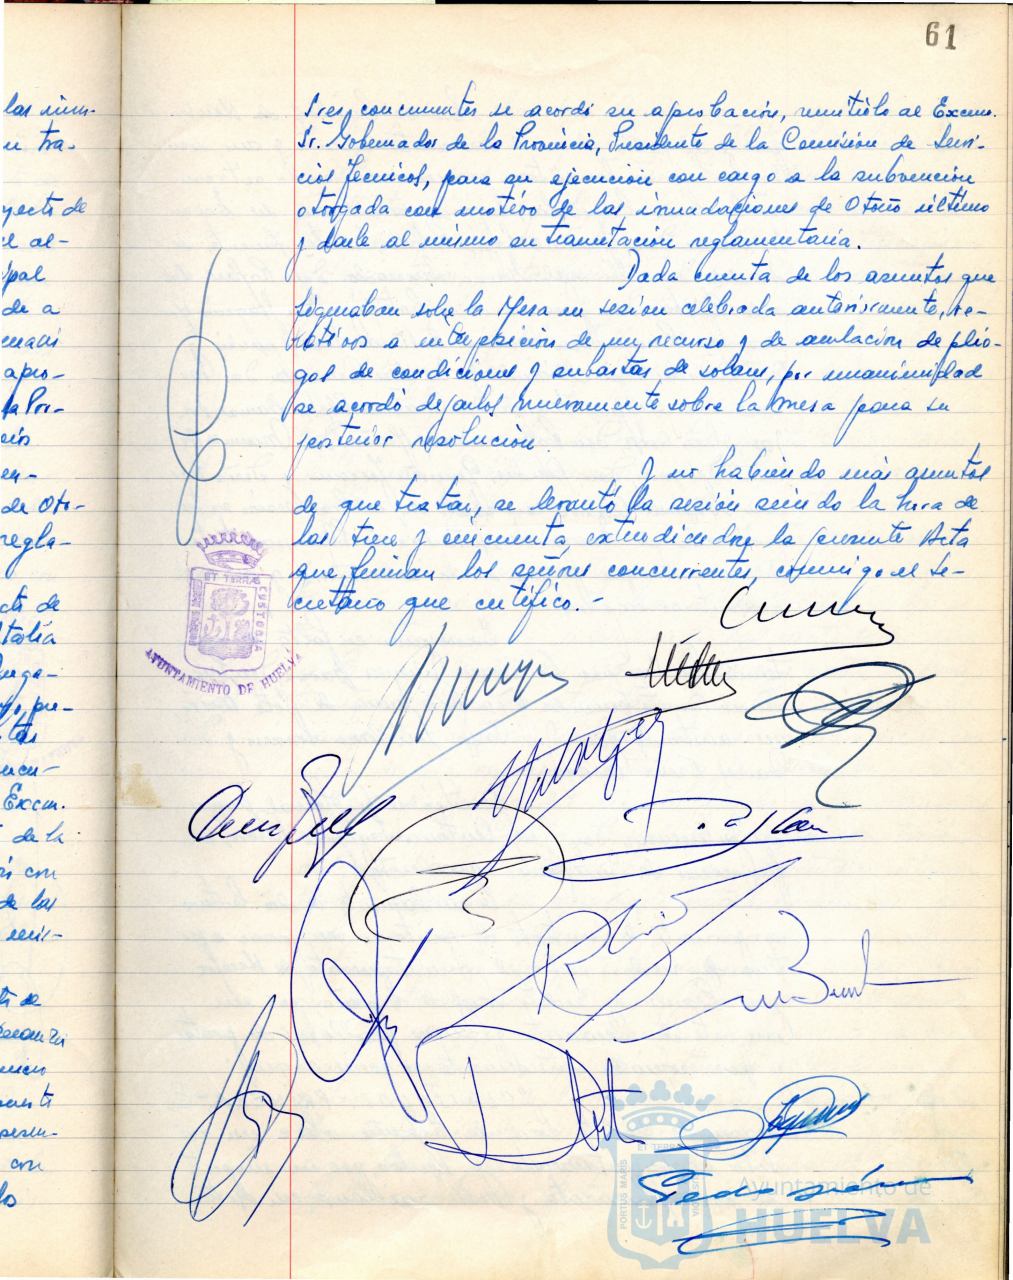 61
Sres. concurrentes se acordó su aprobación, remitirlo al Excmo.
Sr. Gobernador de la Provincia, Presidente de la Comisión de Servi-
cios Técnicos, para su ejecución con cargo a la subvención
otorgada con motivo de las inundaciones de Otoño último
y darle al mismo su tramitación reglamentaria.
Dada cuenta de los asuntos que
figuraban sobre la Mesa en sesión celebrada anteriormente, re-
lativos a interposición de un recurso y de anulación de plie-
gos de condiciones y subastas de solares, por unanimidad
se acordó dejarlos nuevamente sobre la mesa para su
posterior resolución.
Y no habiendo más asuntos
de que tratar, se levantó la sesión siendo la hora de
las trece y cincuenta, extendiéndose la presente Acta
que firman los señores concurrentes, conmigo el Se-
cretario que certifico.-
ET TERRAS CUSTODIA
AYUNTAMIENTO DE HUELVA
las inun-
tra-
yecto de
el al-
ipal
de a
apro-
la Pro-
en-
de Oto-
regla-
de
Excm.
de la
con
de las
con
PORTUS MARIS
ET TERRAS
Ayuntamiento de
HUELVA